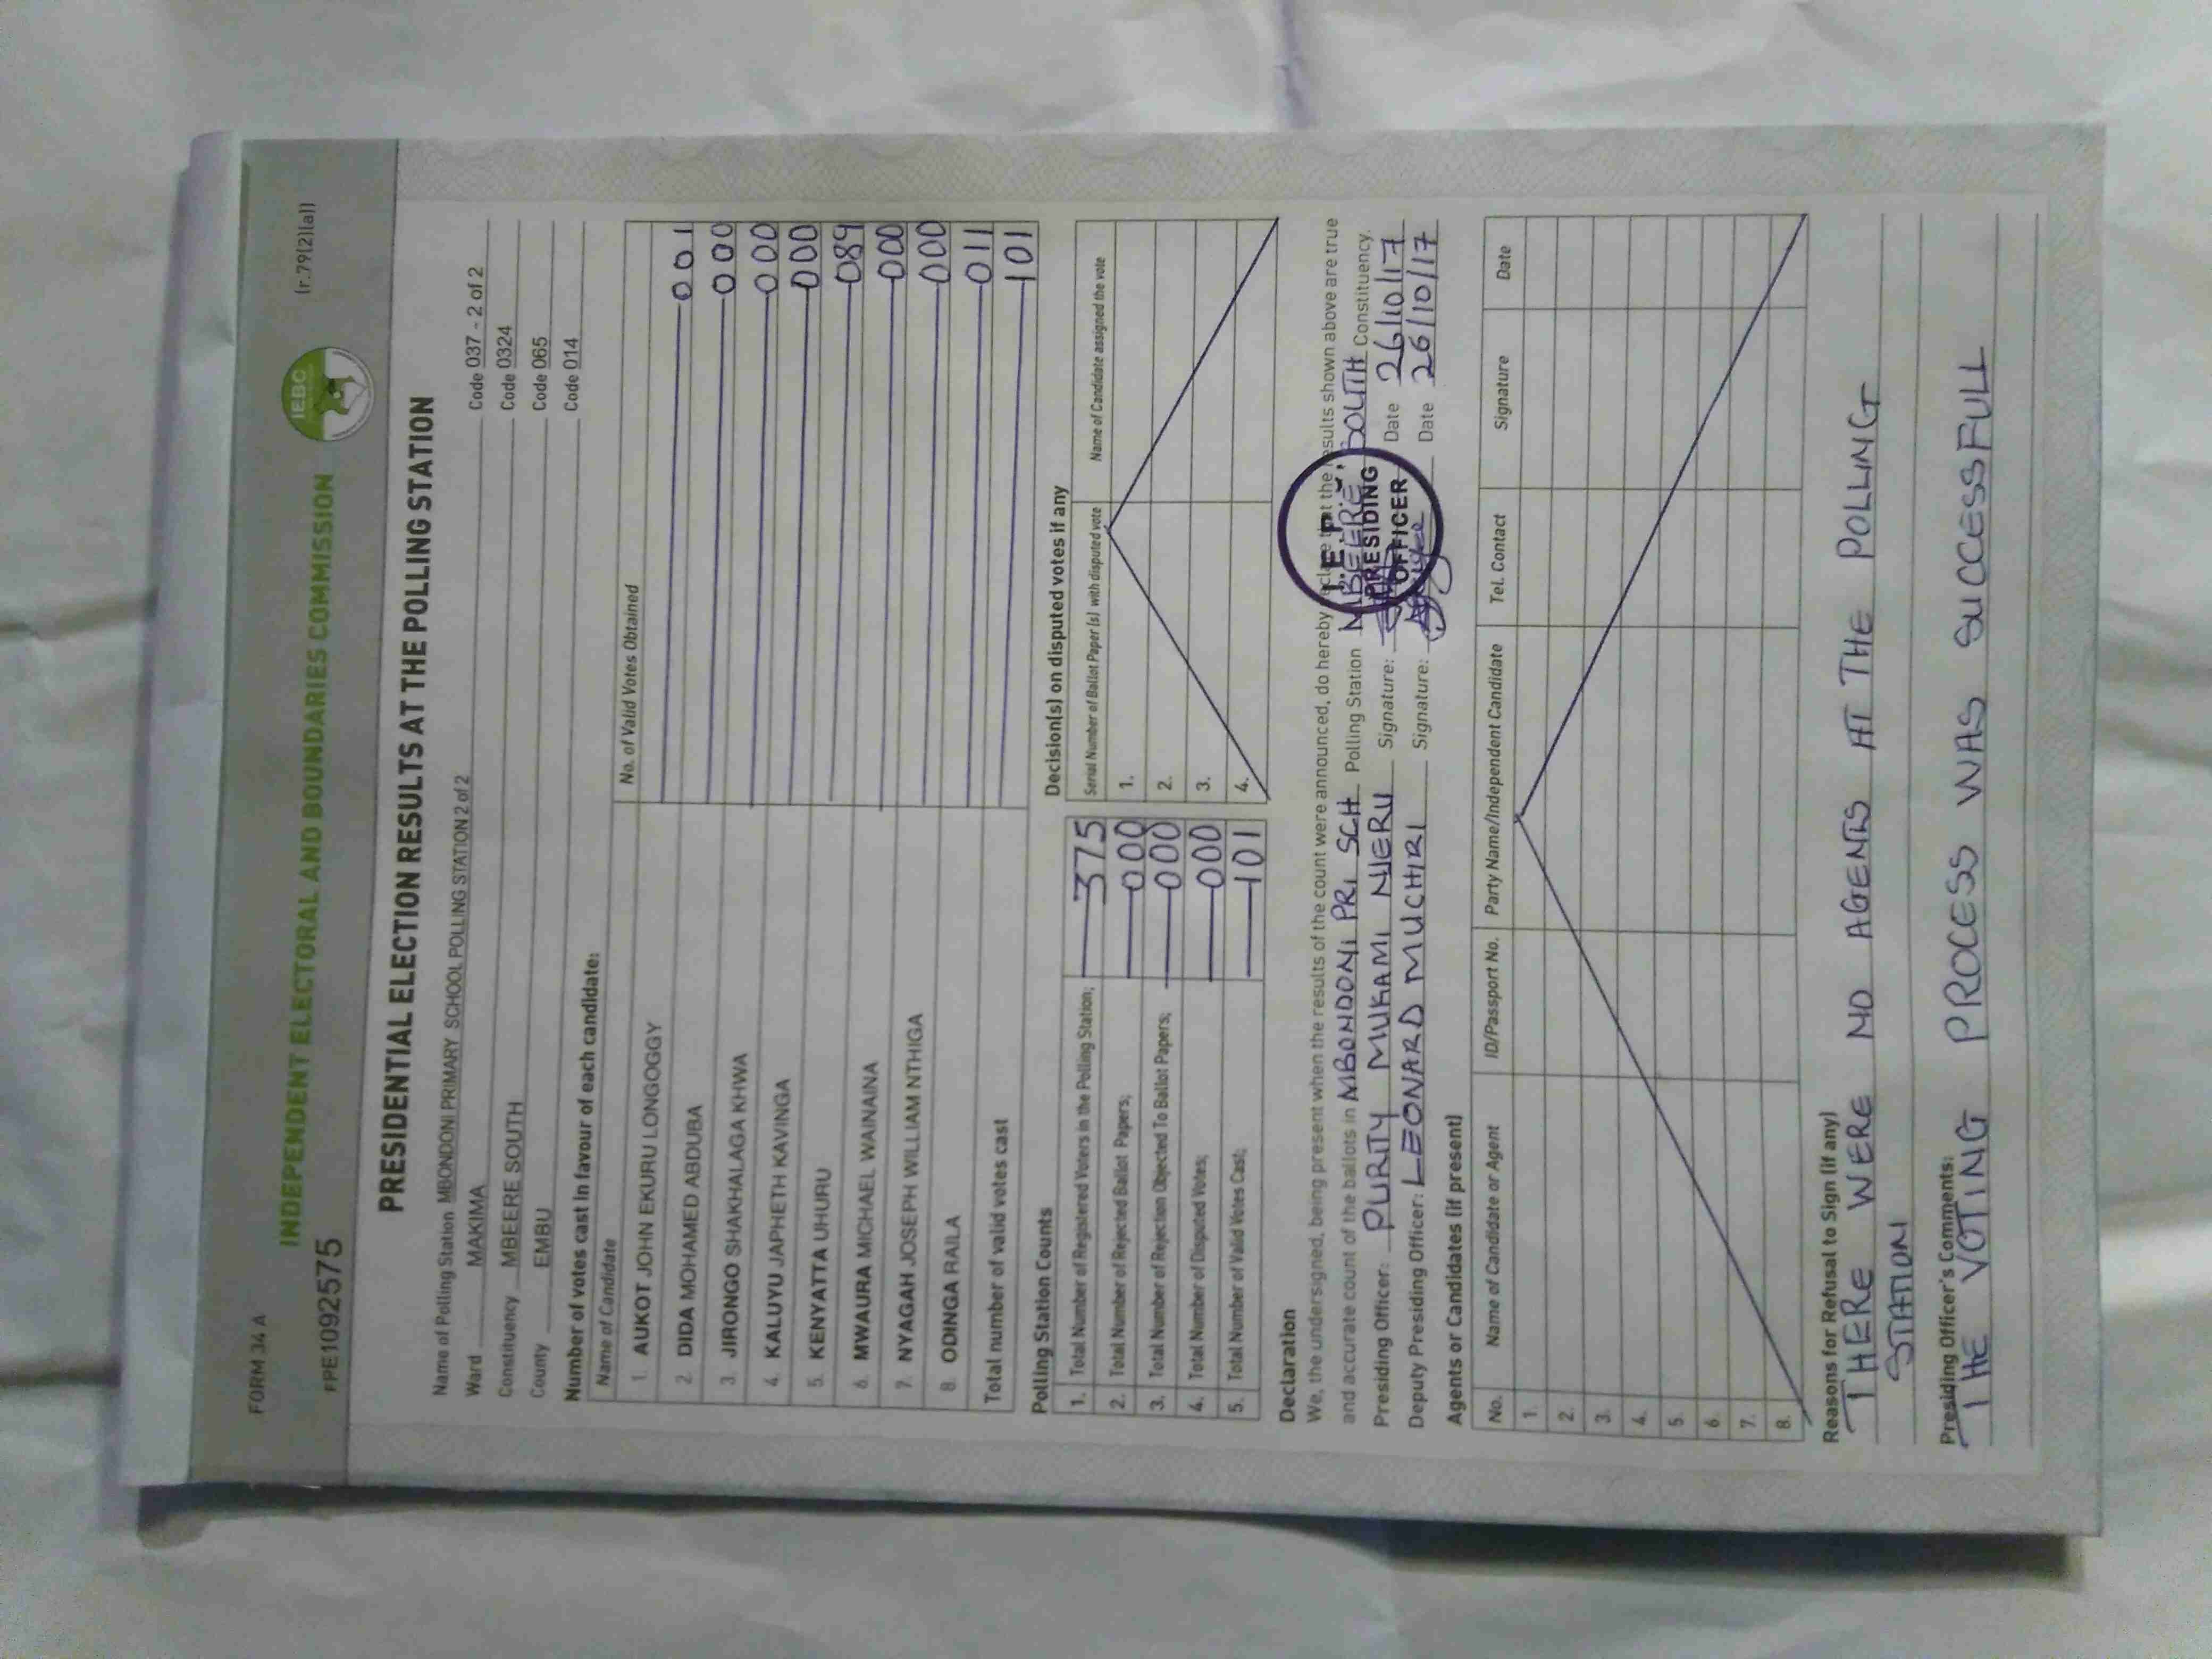 FORM 34 A
INDEPENDENT ELECTORAL AND BOUNDARIES COMMISSION
IEBC
(r.79(2)(a))
FPE1092575
PRESIDENTIAL ELECTION RESULTS AT THE POLLING STATION
Name of Polling Station MBONDONI PRIMARY SCHOOL POLLING STATION 2 of 2 Code 037 - 2 of 2
Ward MAKIMA Code 0324
Constituency MBEERE SOUTH Code 065
County EMBU Code 014
Number of votes cast in favour of each candidate:
Name of Candidate No. of Valid Votes Obtained
1. AUKOT JOHN EKURU LONGOGGY 001
2. DIDA MOHAMED ABDUBA 000
3. JIRONGO SHAKHALAGA KHWA 000
4. KALUYU JAPHETH KAVINGA 000
5. KENYATTA UHURU 089
6. MWAURA MICHAEL WAINAINA 000
7. NYAGAH JOSEPH WILLIAM NTHIGA 000
8. ODINGA RAILA 011
Total number of valid votes cast 101
Polling Station Counts
1. Total Number of Registered Voters in the Polling Station; 375
2. Total Number of Rejected Ballot Papers; 000
3. Total Number of Rejection Objected To Ballot Papers; 000
4. Total Number of Disputed Votes; 000
5. Total Number of Valid Votes Cast; 101
Decision(s) on disputed votes if any
Serial Number of Ballot Paper (s) with disputed vote Name of Candidate assigned the vote
1.
2.
3.
4.
Declaration
We, the undersigned, being present when the results of the count were announced, do hereby declare that the results shown above are true
and accurate count of the ballots in MBONDONI PRI SCH Polling Station MBEERE SOUTH Constituency.
Presiding Officer: PURITY MUKAMI NJERU Signature: Date 26/10/17
Deputy Presiding Officer: LEONARD MUCHIRI Signature: Date 26/10/17
PRESIDING
OFFICER
Agents or Candidates (if present)
No. Name of Candidate or Agent ID/Passport No. Party Name/Independent Candidate Tel. Contact Signature Date
1.
2.
3.
4.
5.
6.
7.
8.
Reasons for Refusal to Sign (if any)
THERE WERE NO AGENTS AT THE POLLING
STATION
Presiding Officer's Comments:
THE VOTING PROCESS WAS SUCCESSFULL